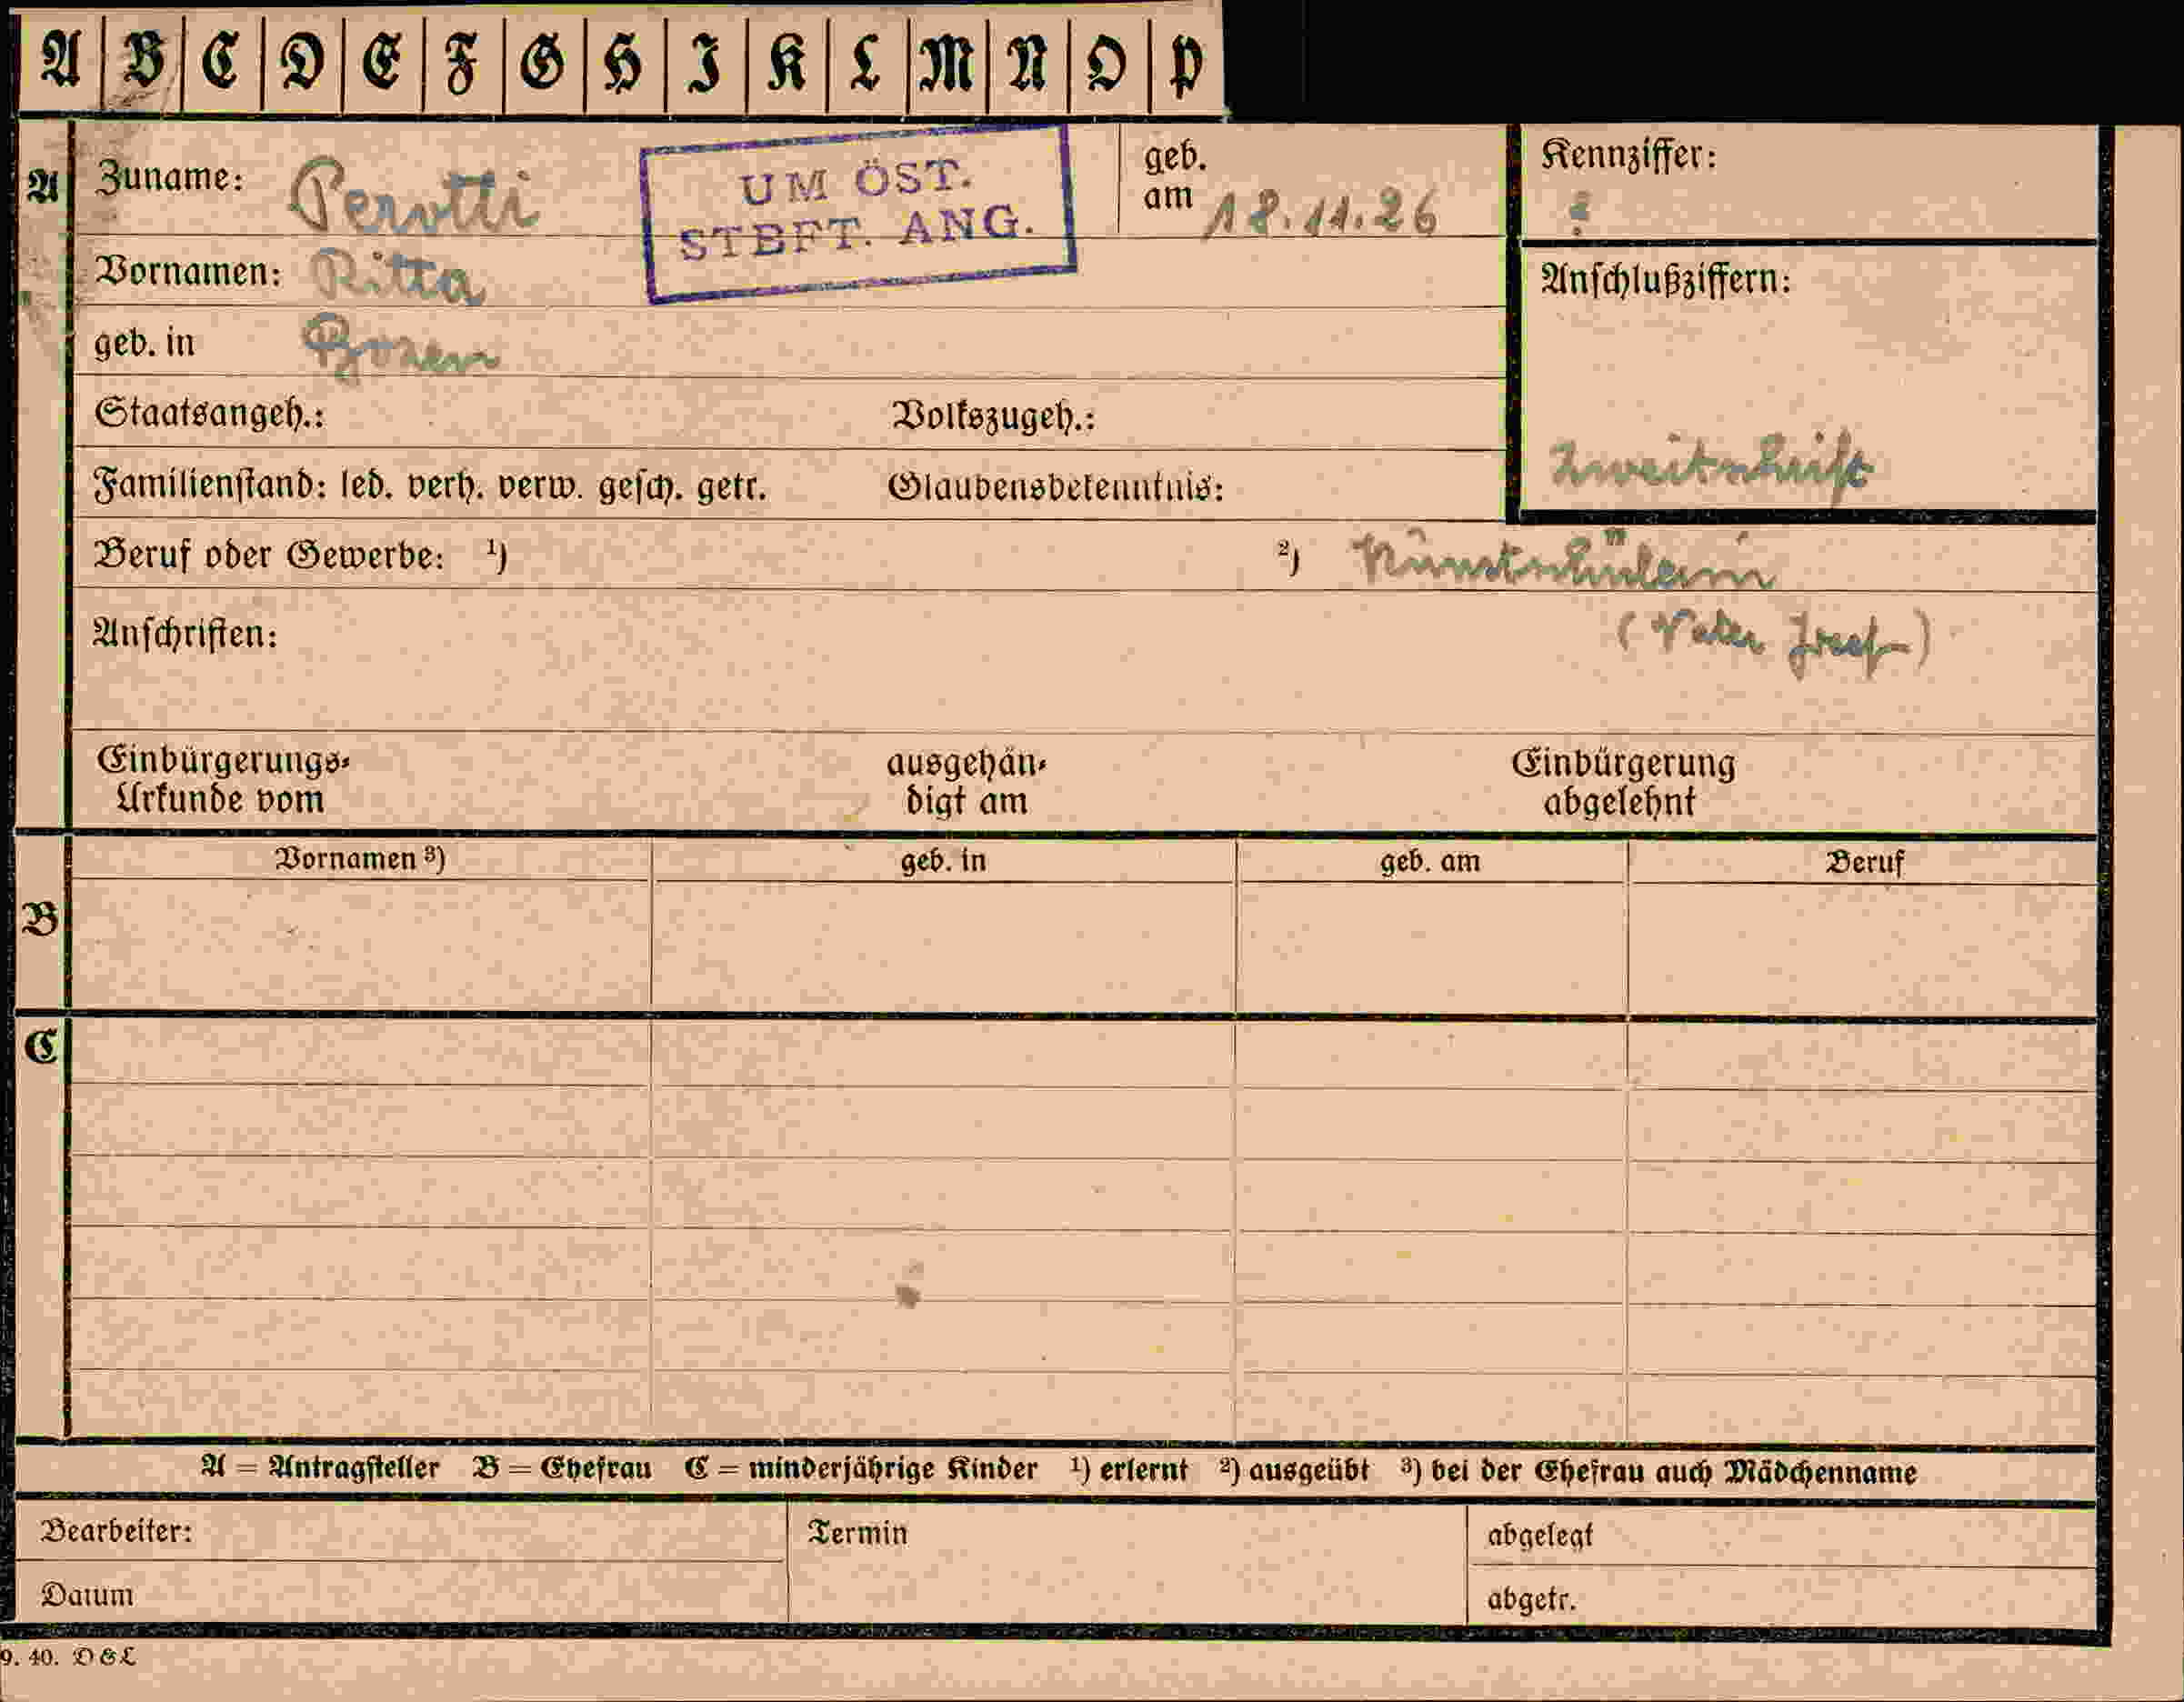 A B C D E F G H I K L M N O P
A Zuname: Perotti
UM ÖST.
STBFT. ANG.
geb.
am 18.11.26
Kennziffer:
?
Vornamen: Ritta
Anschlußziffern:
geb. in Bozen
Staatsangeh.: Volkszugeh.:
Zweitschrift
Familienstand: led. verh. verw. gesch. getr. Glaubensbekenntnis:
Beruf oder Gewerbe: ¹) ²) Kunstschülerin
Anschriften: (Vater Josef)
Einbürgerungs-
Urkunde vom
ausgehän-
digt am
Einbürgerung
abgelehnt
Vornamen ³) geb. in geb. am Beruf
B
C
A = Antragsteller B = Ehefrau C = minderjährige Kinder ¹) erlernt ²) ausgeübt ³) bei der Ehefrau auch Mädchenname
Bearbeiter: Termin abgelegt
Datum abgetr.
9. 40. D&L